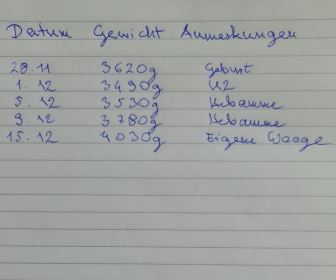 Datum Gewicht Anmerkungen
28.11 3620g Geburt
1.12 3490g U2
5.12 3530g Hebamme
9.12 3780g Hebamme
15.12 4030g Eigene Waage